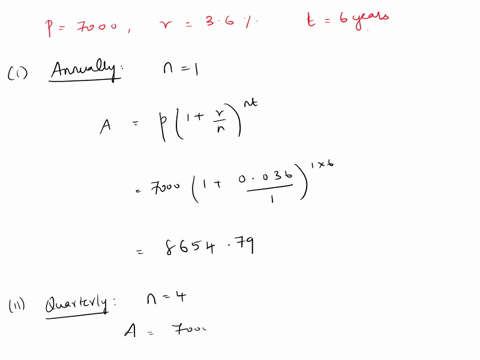 P = 7000, r = 3.6 % t = 6 years
(i) Annually: n = 1
A = P(1 + r/n)^nt
= 7000 (1 + 0.036/1)^1×6
= 8654.79
(ii) Quarterly: n = 4
A = 700